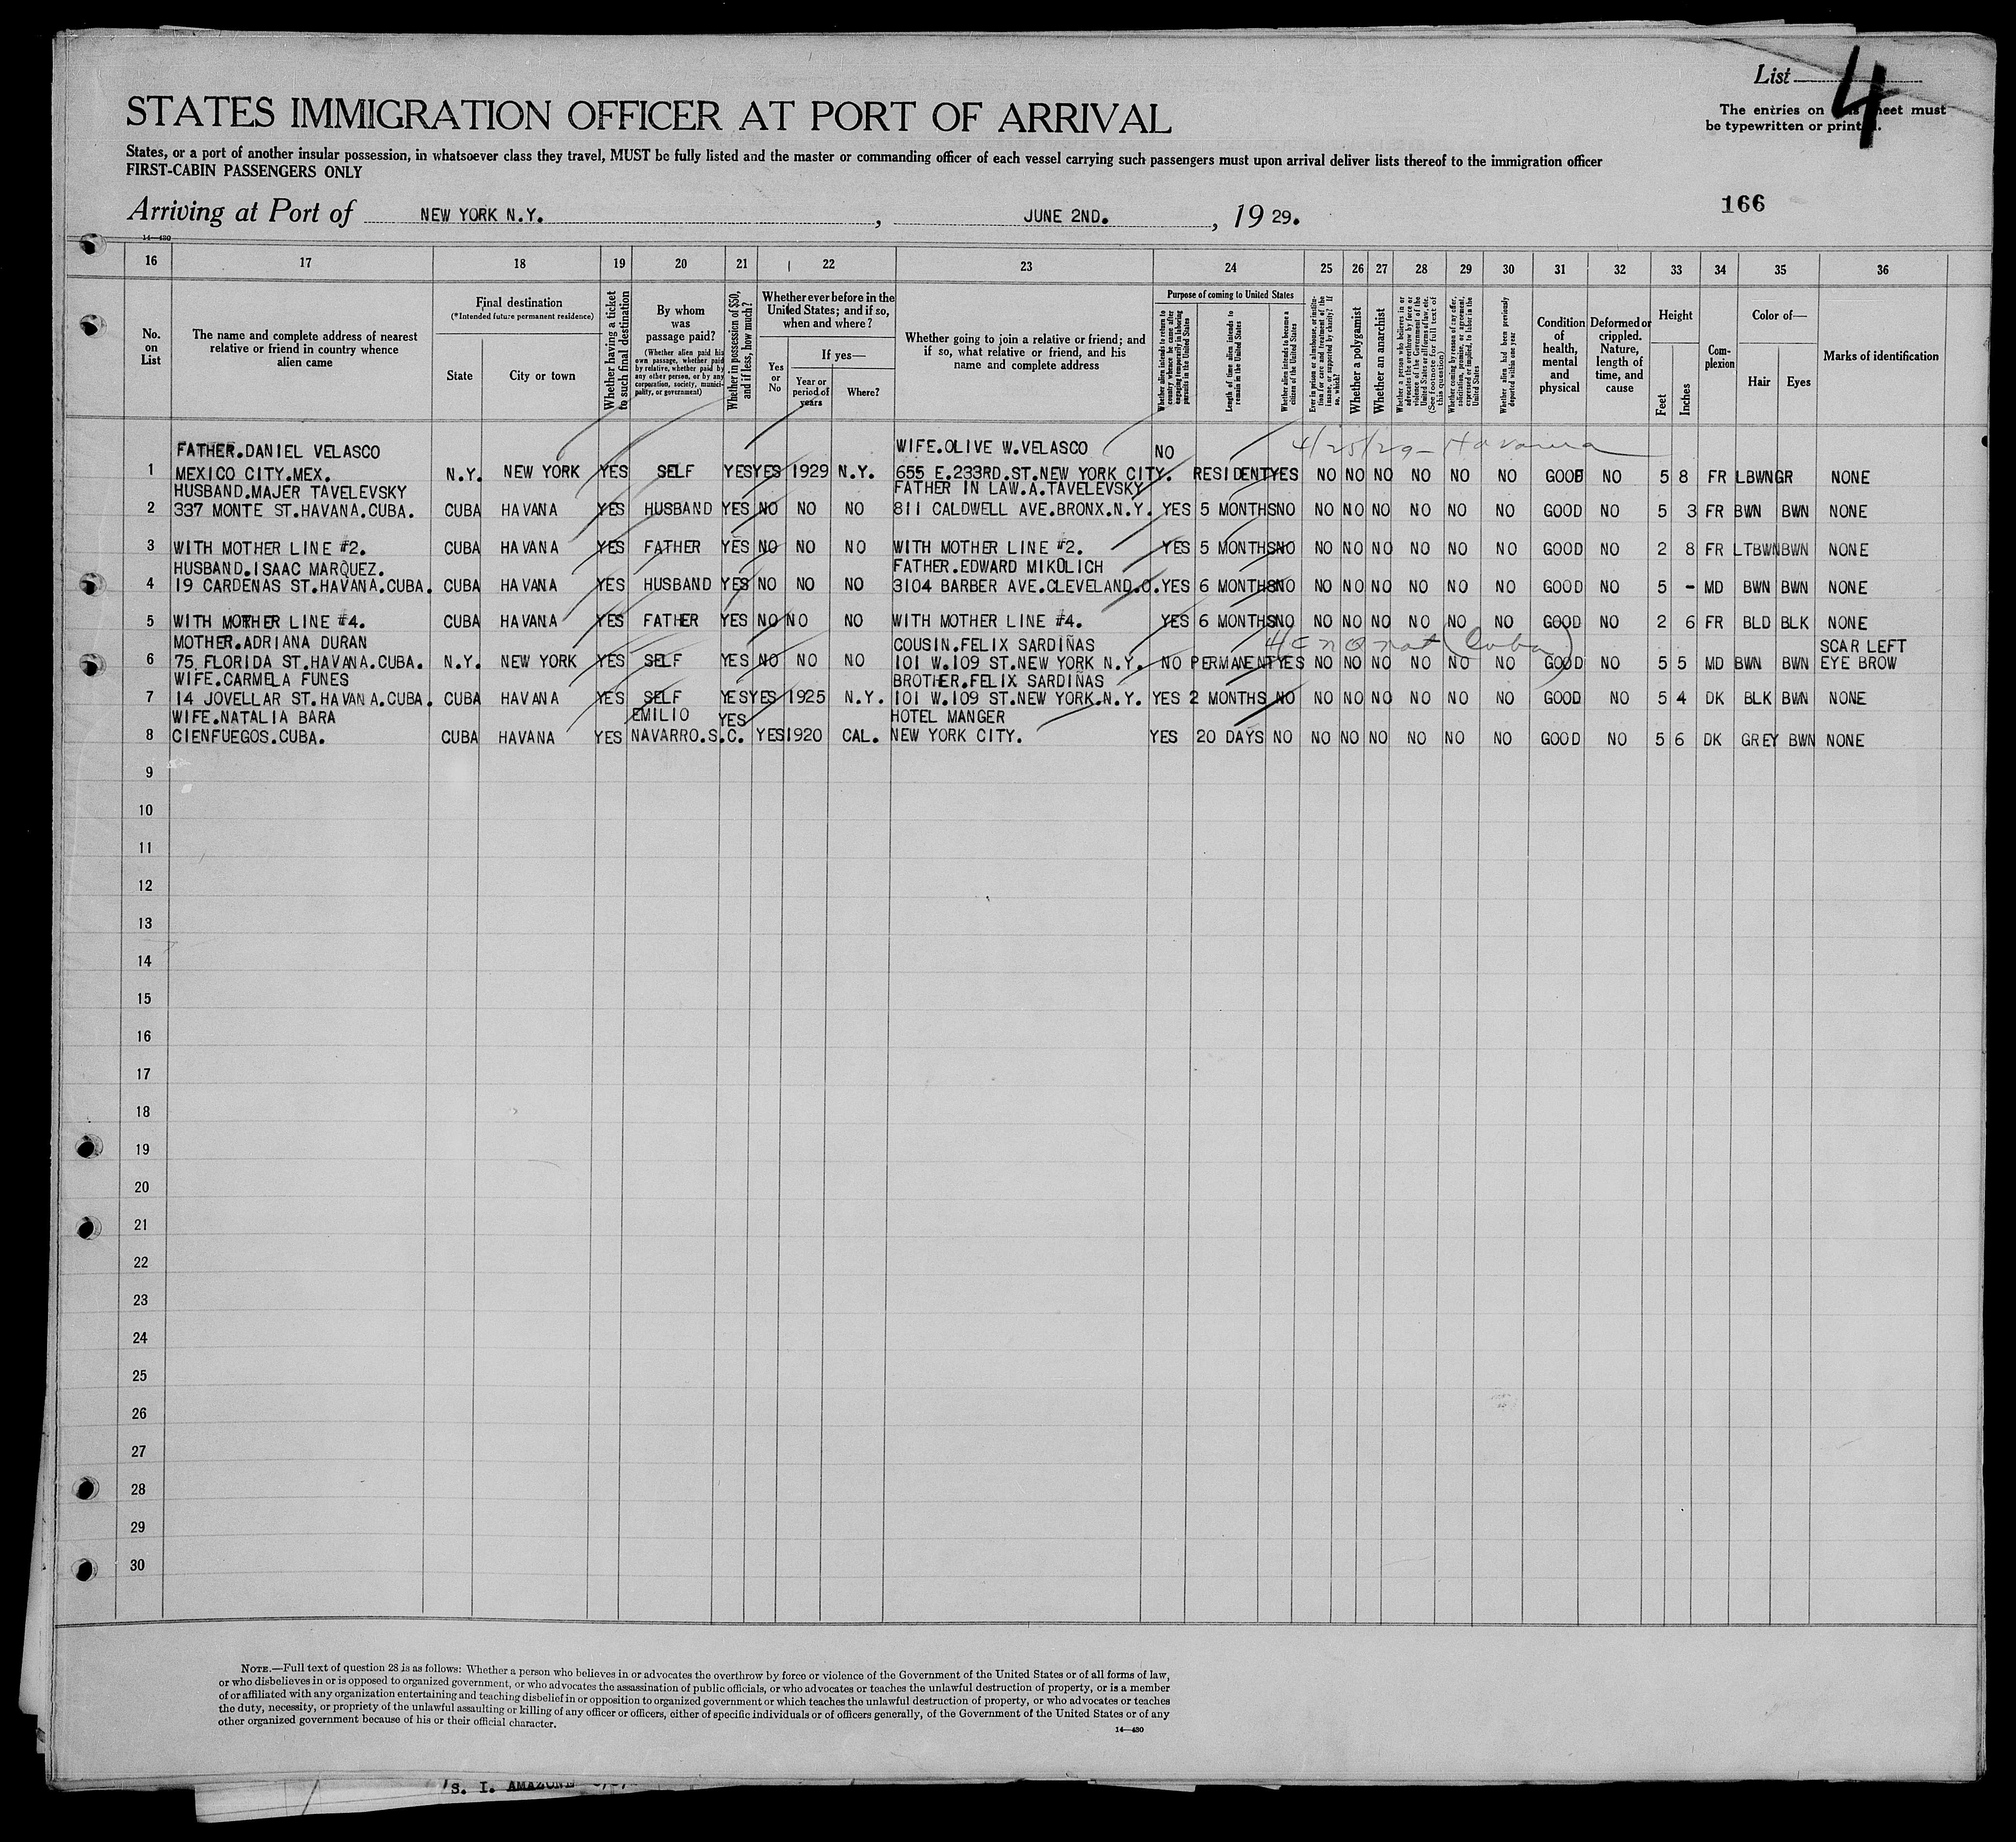 List 4
STATES IMMIGRATION OFFICER AT PORT OF ARRIVAL
The entries on sheet must
be typewritten or printed.
States, or a port of another insular possession, in whatsoever class they travel, MUST be fully listed and the master or commanding officer of each vessel carrying such passengers must upon arrival deliver lists thereof to the immigration officer
FIRST-CABIN PASSENGERS ONLY
Arriving at Port of NEW YORK N.Y. , JUNE 2ND. , 19 29.
166
14—430
16 17 18 19 20 21 22 23 24 25 26 27 28 29 30 31 32 33 34 35 36
No. on List
The name and complete address of nearest relative or friend in country whence alien came
Final destination
(*Intended future permanent residence)
State
City or town
Whether having a ticket to such final destination
By whom was passage paid?
(Whether alien paid his own passage, whether paid by relative, whether paid by any other person, or by any corporation, society, municipality, or government)
Whether in possession of $50, and if less, how much?
Whether ever before in the United States; and if so, when and where?
Yes or No
If yes—
Year or period of years
Where?
Whether going to join a relative or friend; and if so, what relative or friend, and his name and complete address
Purpose of coming to United States
Whether alien intends to return to country whence he came after engaging temporarily in laboring pursuits in the United States
Length of time alien intends to remain in the United States
Whether alien intends to become a citizen of the United States
Ever in prison or almshouse, or institution for care and treatment of the insane, or supported by charity? If so, which?
Whether a polygamist
Whether an anarchist
Whether a person who believes in or advocates the overthrow by force or violence of the Government of the United States or all forms of law, etc. (See footnote for full text of this question)
Whether coming by reason of any offer, solicitation, promise, or agreement, expressed or implied, to labor in the United States
Whether alien had been previously deported within one year
Condition of health, mental and physical
Deformed or crippled. Nature, length of time, and cause
Height
Feet
Inches
Complexion
Color of—
Hair
Eyes
Marks of identification
FATHER.DANIEL VELASCO WIFE.OLIVE W.VELASCO NO 4/25/29-Havana
1 MEXICO CITY.MEX. N.Y. NEW YORK YES SELF YES YES 1929 N.Y. 655 E.233RD.ST.NEW YORK CITY. RESIDENT YES NO NO NO NO NO NO GOOD NO 5 8 FR LBWN GR NONE
HUSBAND.MAJER TAVELEVSKY FATHER IN LAW.A.TAVELEVSKY
2 337 MONTE ST.HAVANA.CUBA. CUBA HAVANA YES HUSBAND YES NO NO NO 811 CALDWELL AVE.BRONX.N.Y. YES 5 MONTHS NO NO NO NO NO NO NO GOOD NO 5 3 FR BWN BWN NONE
3 WITH MOTHER LINE #2. CUBA HAVANA YES FATHER YES NO NO NO WITH MOTHER LINE #2. YES 5 MONTHS NO NO NO NO NO NO NO GOOD NO 2 8 FR LTBWN BWN NONE
HUSBAND.ISAAC MARQUEZ. FATHER.EDWARD MIKOLICH
4 19 CARDENAS ST.HAVANA.CUBA. CUBA HAVANA YES HUSBAND YES NO NO NO 3104 BARBER AVE.CLEVELAND.O. YES 6 MONTHS NO NO NO NO NO NO NO GOOD NO 5 - MD BWN BWN NONE
5 WITH MOTHER LINE #4. CUBA HAVANA YES FATHER YES NO NO NO WITH MOTHER LINE #4. YES 6 MONTHS NO NO NO NO NO NO NO GOOD NO 2 6 FR BLD BLK NONE
MOTHER.ADRIANA DURAN COUSIN.FELIX SARDIÑAS (Cuba) SCAR LEFT
6 75 FLORIDA ST.HAVANA.CUBA. N.Y. NEW YORK YES SELF YES NO NO NO 101 W.109 ST.NEW YORK N.Y. NO PERMANENT YES NO NO NO NO NO NO GOOD NO 5 5 MD BWN BWN EYE BROW
WIFE.CARMELA FUNES BROTHER.FELIX SARDIÑAS
7 14 JOVELLAR ST.HAVANA.CUBA. CUBA HAVANA YES SELF YES YES 1925 N.Y. 101 W.109 ST.NEW YORK.N.Y. YES 2 MONTHS NO NO NO NO NO NO NO GOOD NO 5 4 DK BLK BWN NONE
WIFE.NATALIA BARA EMILIO YES HOTEL MANGER
8 CIENFUEGOS.CUBA. CUBA HAVANA YES NAVARRO.S.C. YES 1920 CAL. NEW YORK CITY. YES 20 DAYS NO NO NO NO NO NO NO GOOD NO 5 6 DK GREY BWN NONE
9
10
11
12
13
14
15
16
17
18
19
20
21
22
23
24
25
26
27
28
29
30
NOTE.—Full text of question 28 is as follows: Whether a person who believes in or advocates the overthrow by force or violence of the Government of the United States or of all forms of law,
or who disbelieves in or is opposed to organized government, or who advocates the assassination of public officials, or who advocates or teaches the unlawful destruction of property, or is a member
of or affiliated with any organization entertaining and teaching disbelief in or opposition to organized government or which teaches the unlawful destruction of property, or who advocates or teaches
the duty, necessity, or propriety of the unlawful assaulting or killing of any officer or officers, either of specific individuals or of officers generally, of the Government of the United States or of any
other organized government because of his or their official character.
14—430
S. I.